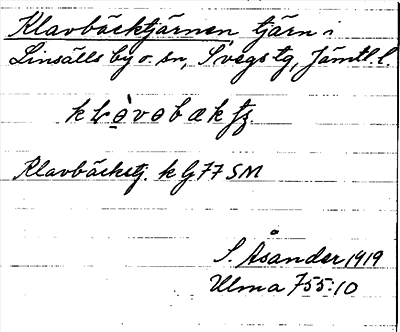 Klavbäcktjärnen tjärn i
Linsälls by o. sn, Svegs tg, Jämtl. l.
Klavbäckstj. k bl 77 SM
S. Åsander 1919
Ulma 755:10